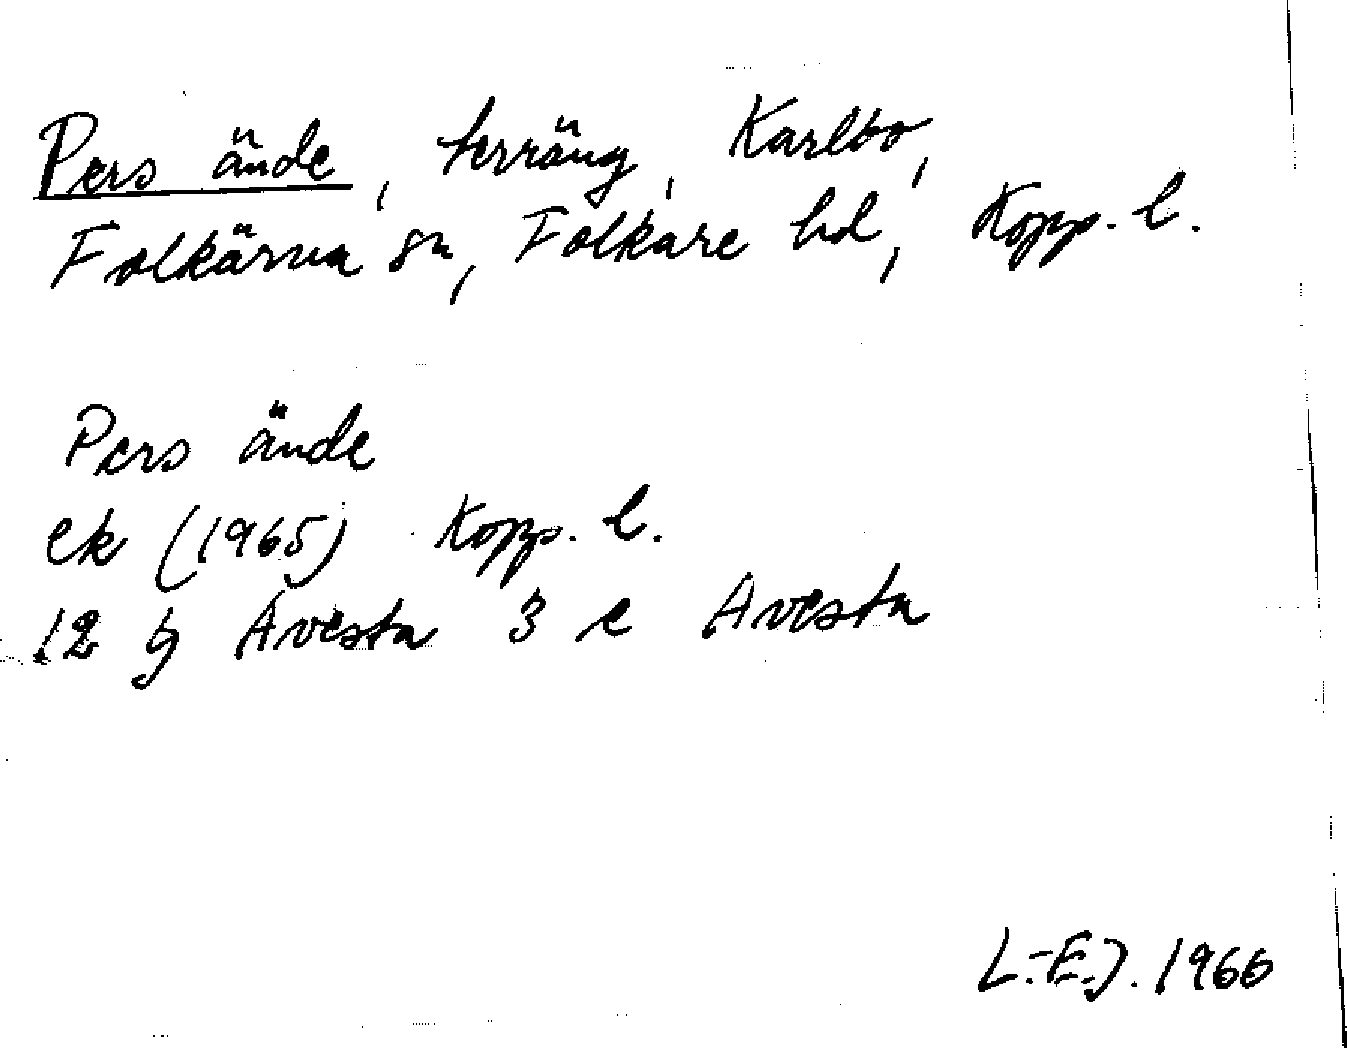 Pers ände, terräng, Karlbo,
Folkärna sn, Folkare hd, Kopp. l.
Pers ände
ek (1965) Kopp. l.
12 g Avesta 3 e Avesta
L.-E.J. 1966